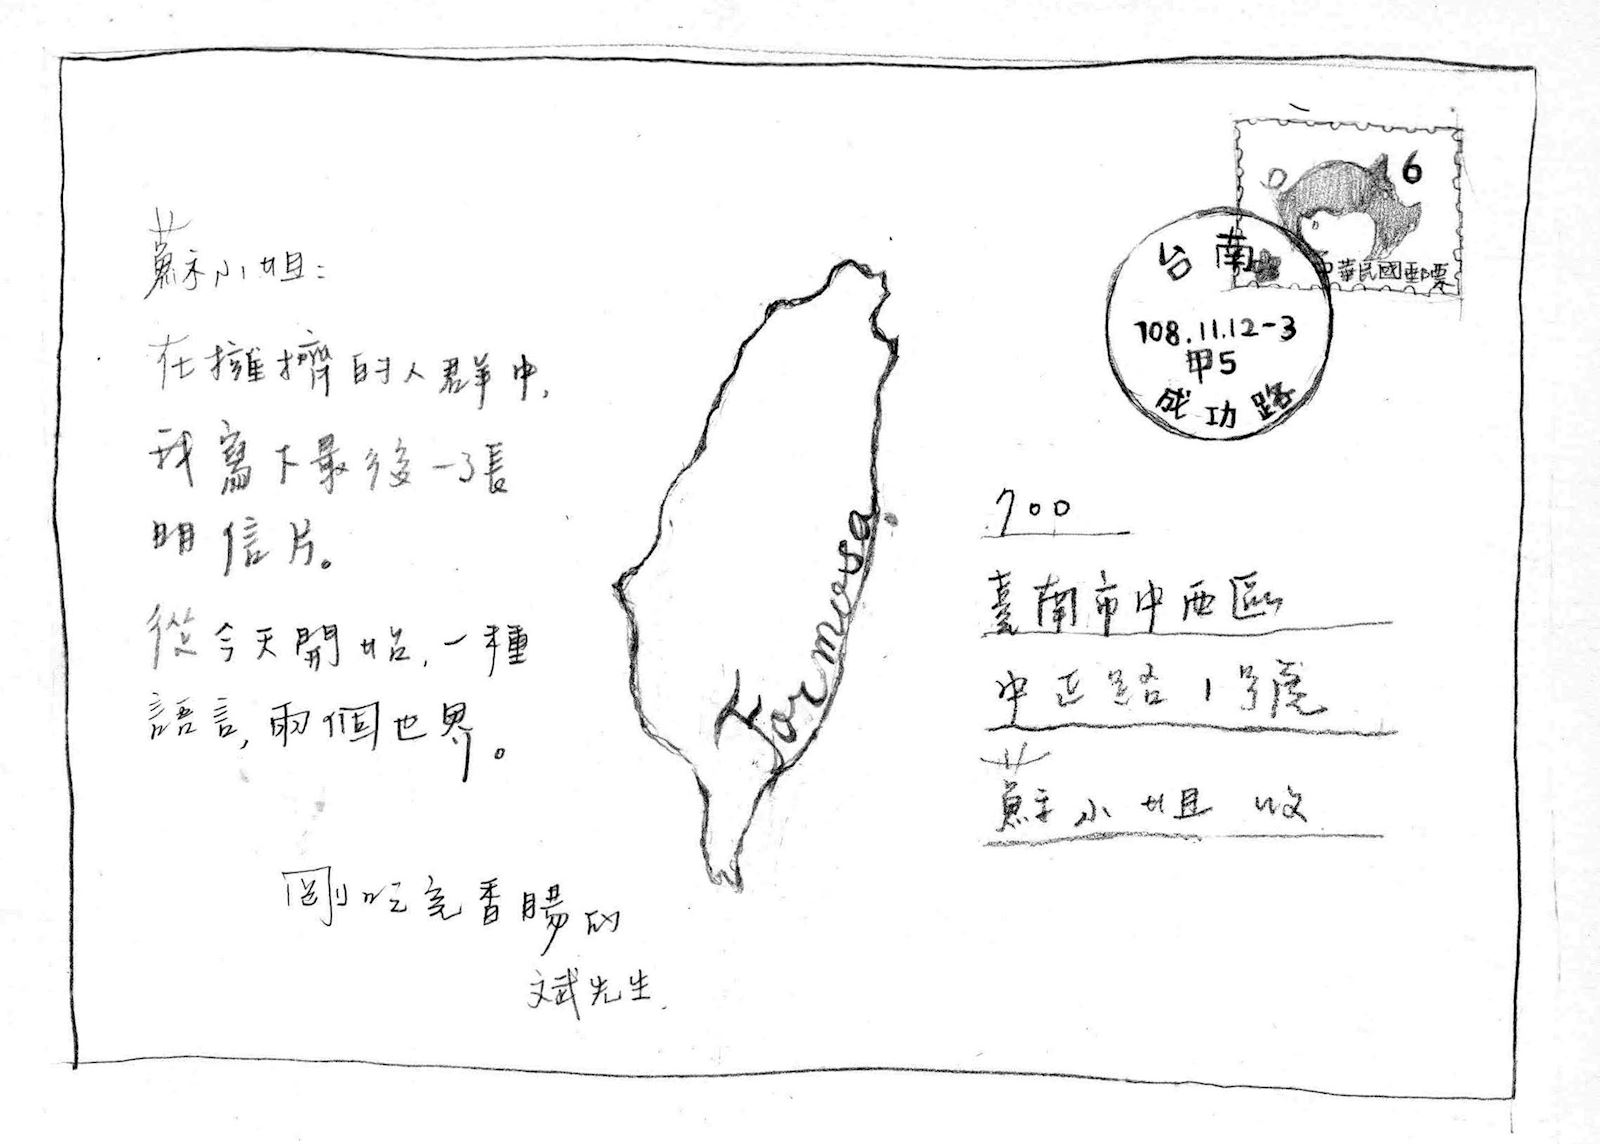 蘇小姐:
在擁擠的人群中,
我寫下最後一張
明信片。
從今天開始,一種
語言,兩個世界。
剛吃完香腸的
斌先生.
Formosa
6
中華民國郵票
台南
108.11.12-3
甲5
成功路
700
臺南市中西區
中正路1號
蘇小姐 收